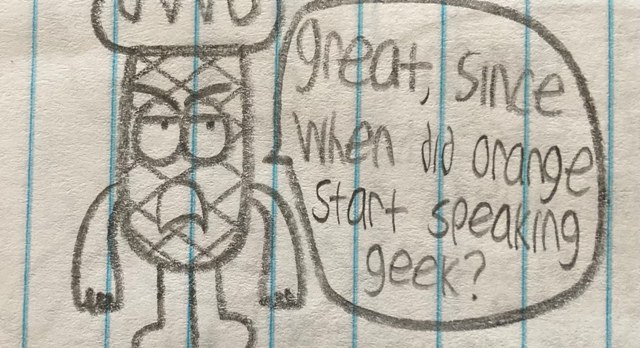 great, since
when did orange
start speaking
geek?